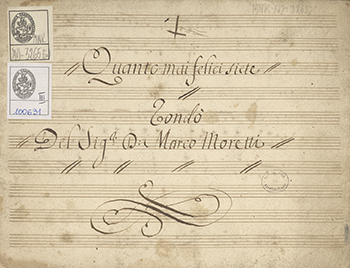 Quanto mai felici siete
Rondò
Del Sig.r D. Marco Moretti
100631